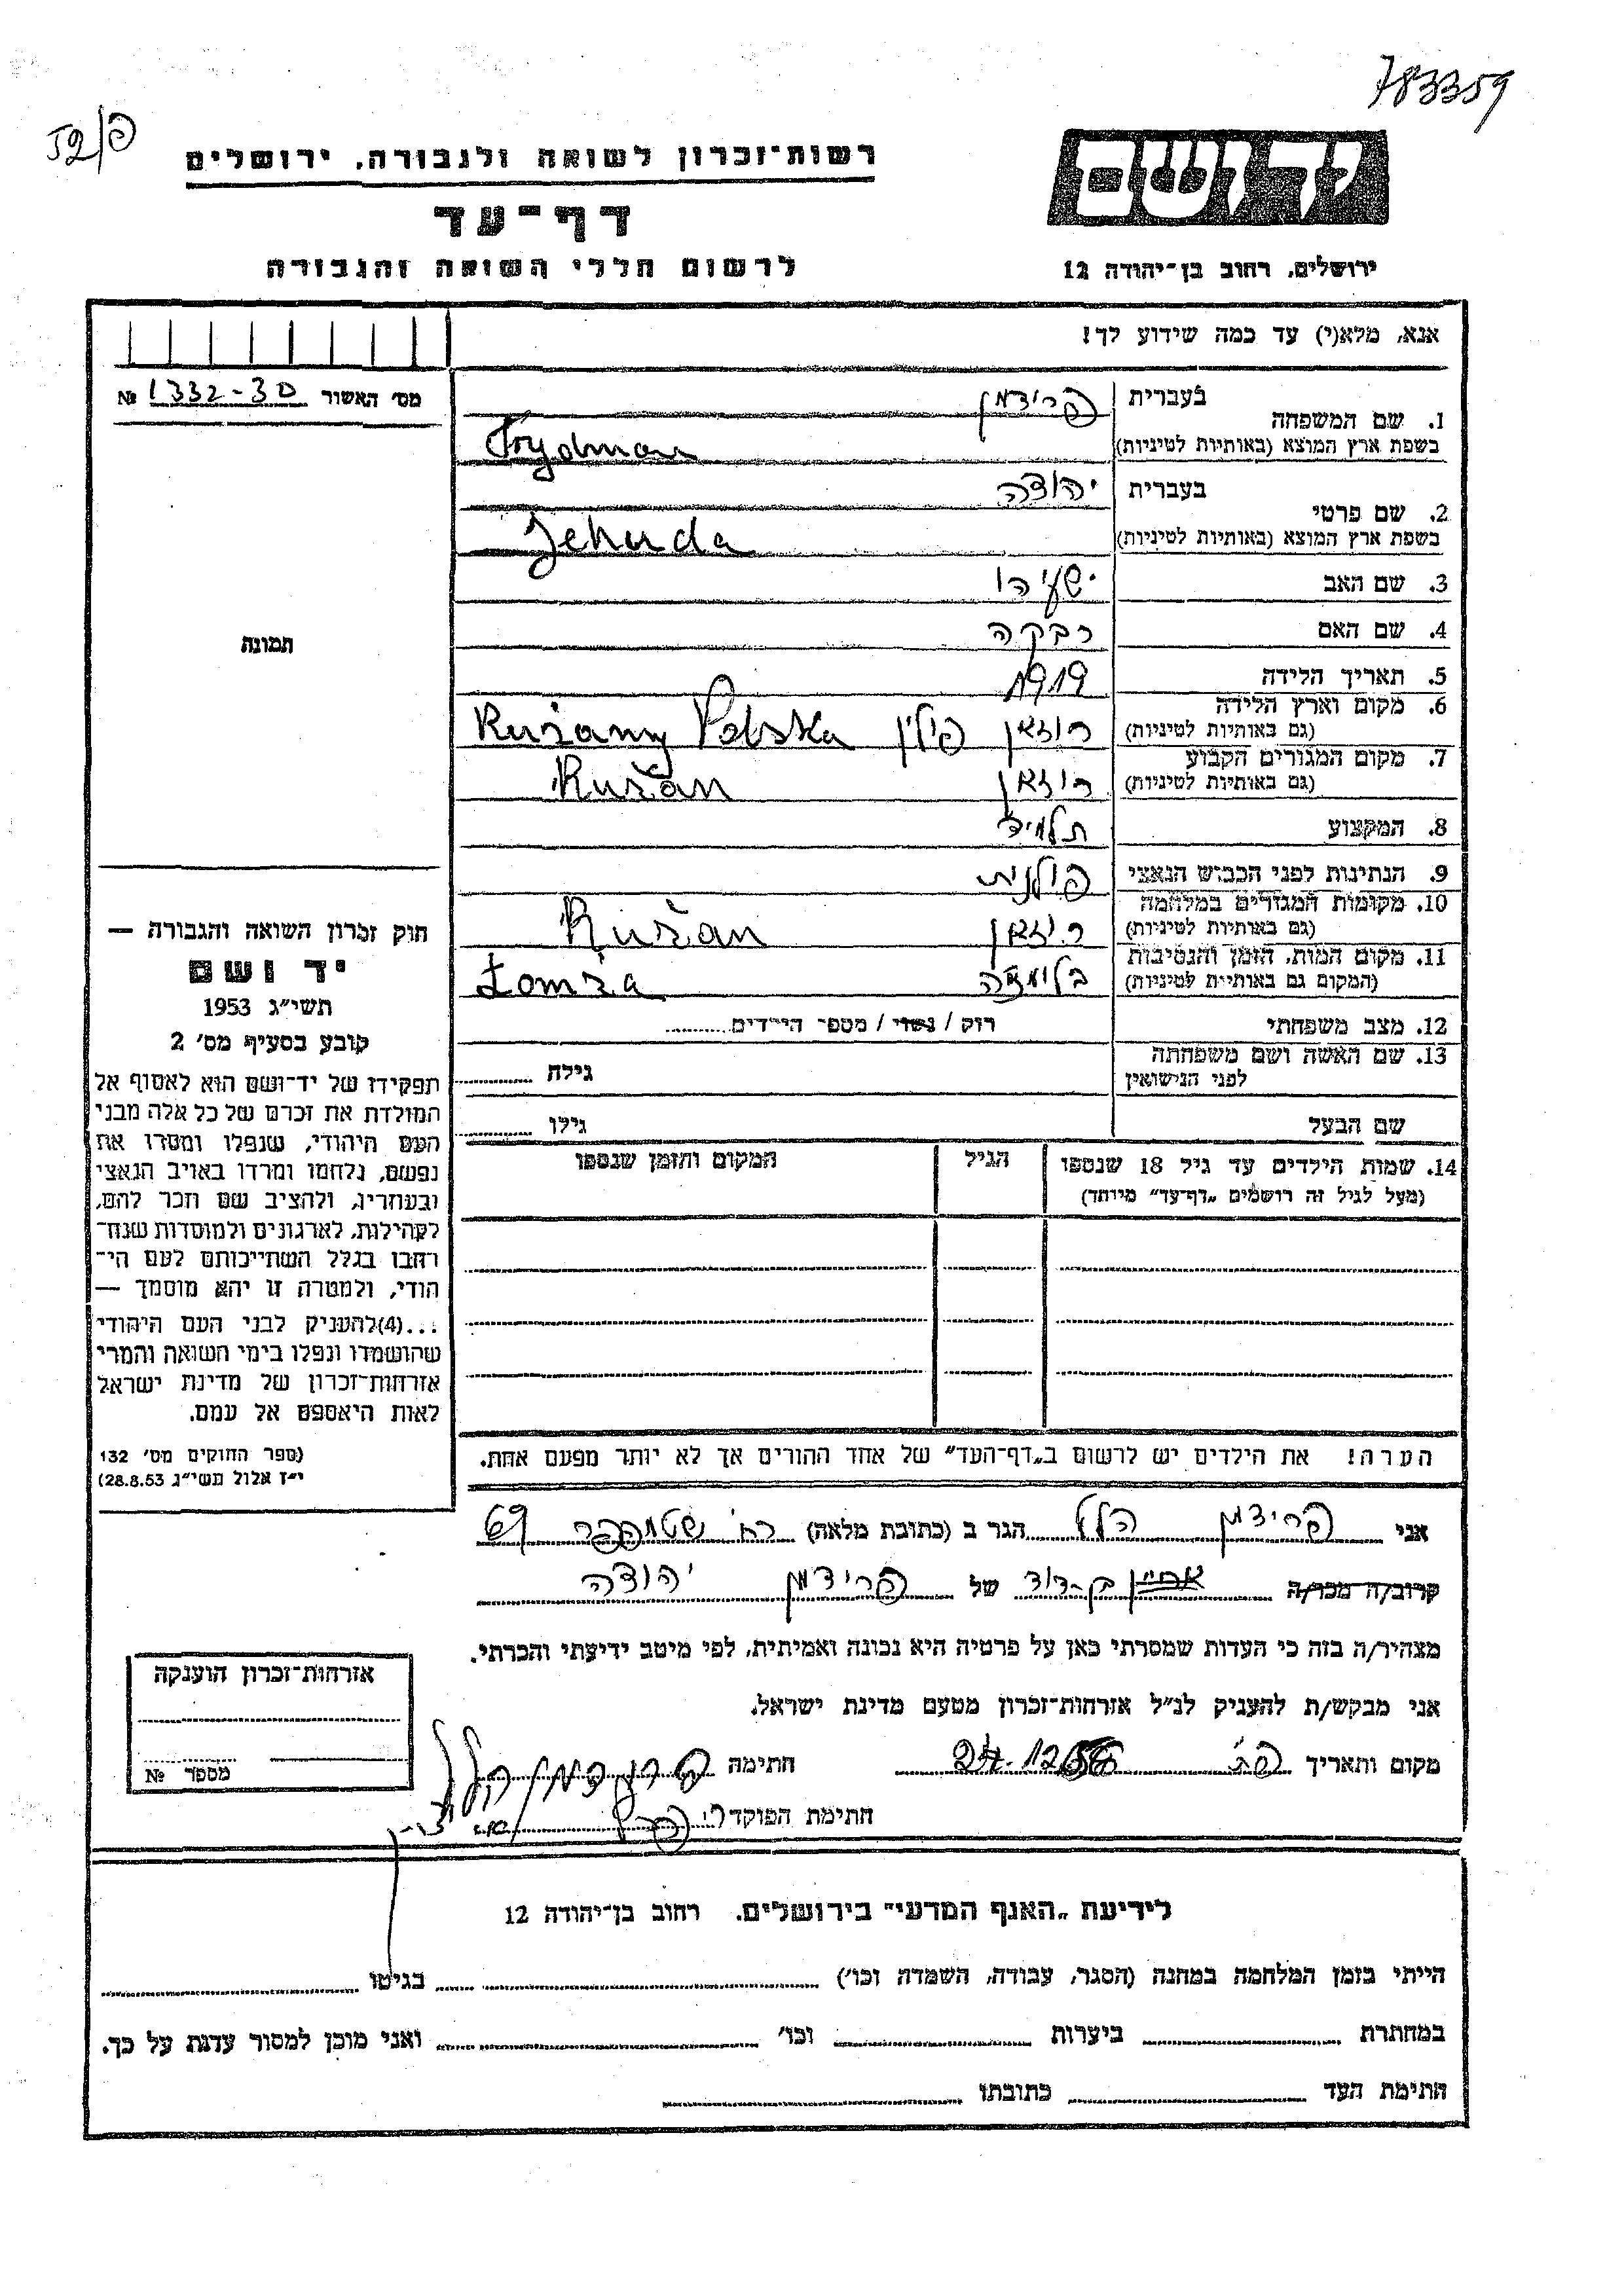 783359
52/פ
יד ושם
רשות־זכרון לשואה ולגבורה, ירושלים
דף־עד
לרשום חללי השואה והגבורה
ירושלים, רחוב בן־יהודה 12
אנא, מלא(י) עד כמה שידוע לך!
מס' האשור 1332-30 №
1. שם המשפחה בעברית פרידמן
בשפת ארץ המוצא (באותיות לטיניות) Frydman
2. שם פרטי בעברית יהודה
בשפת ארץ המוצא (באותיות לטיניות) Jehuda
3. שם האב ישעיהו
4. שם האם רבקה
5. תאריך הלידה 1919
6. מקום וארץ הלידה
(גם באותיות לטיניות) רוזאן פולין Kużany Polska
7. מקום המגורים הקבוע
(גם באותיות לטיניות) רוזאן Rużan
8. המקצוע תלמיד
9. הנתינות לפני הכבוש הנאצי פולנית
10. מקומות המגורים במלחמה
(גם באותיות לטיניות) רוזאן Rużan
11. מקום המות, הזמן והנסיבות
(המקום גם באותיות לטיניות) בלומזה Łomża
12. מצב משפחתי רווק / נשוי / מספר הילדים
13. שם האשה ושם משפחתה
לפני הנישואין גילה
שם הבעל גילו
14. שמות הילדים עד גיל 18 שנספו הגיל המקום והזמן שנספו
(מעל לגיל זה רושמים „דף־עד" מיוחד)
הערה! את הילדים יש לרשום ב„דף־העד" של אחד ההורים אך לא יותר מפעם אחת.
תמונה
חוק זכרון השואה והגבורה —
יד ושם
תשי"ג 1953
קובע בסעיף מס' 2
תפקידו של יד־ושם הוא לאסוף אל
המולדת את זכרם של כל אלה מבני
העם היהודי, שנפלו ומסרו את
נפשם, נלחמו ומרדו באויב הנאצי
ובעוזריו, ולהציב שם וזכר להם,
לקהילות, לארגונים ולמוסדות שנח־
רבו בגלל השתייכותם לעם הי־
הודי, ולמטרה זו יהא מוסמך —
...(4) להעניק לבני העם היהודי
שהושמדו ונפלו בימי השואה והמרי
אזרחות־זכרון של מדינת ישראל
לאות היאספם אל עמם.
(ספר החוקים מס' 132
י"ז אלול תשי"ג 28.8.53)
אני פרידמן הלל הגר ב (כתובת מלאה) רח' שטמפפר 69
קרוב/ה מכר/ה בן-דוד של פרידמן יהודה
מצהיר/ה בזה כי העדות שמסרתי כאן על פרטיה היא נכונה ואמיתית, לפי מיטב ידיעתי והכרתי.
אני מבקש/ת להעניק לנ"ל אזרחות־זכרון מטעם מדינת ישראל.
מקום ותאריך פת 24.12.56 חתימה פרידמן הלל
חתימת הפוקד
אזרחות־זכרון הוענקה
מספר №
לידיעת „האגף המדעי" בירושלים. רחוב בן־יהודה 12
הייתי בזמן המלחמה במחנה (הסגר, עבודה, השמדה וכו') בגיטו
במחתרת ביערות וכו' ואני מוכן למסור עדות על כך.
חתימת העד כתובתו